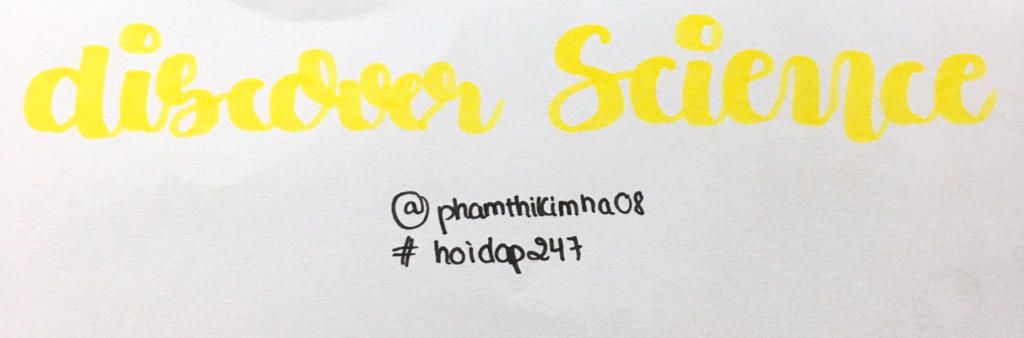 discover Science
@phamthikimha08
# hoidap247